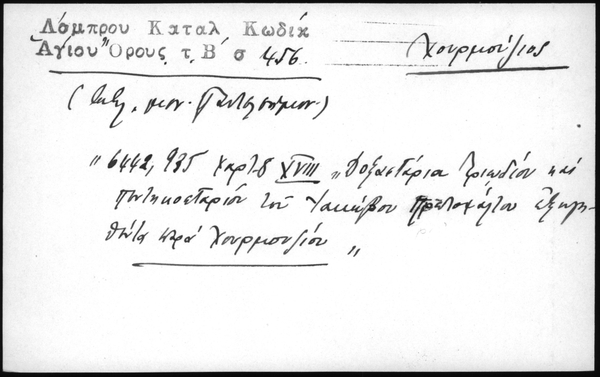 Λάμπρου Καταλ Κωδικ
Ἁγίου Ὄρους. τ. Β' σ 456.
Χουρμούζιος
(βιβλ. μον. Παντελεήμον.)
„ 6442, 935 χαρτ 8 XVIII „ Δοξαστάρια Τριωδίου καὶ
πεντηκοσταρίου τοῦ Ἰακώβου πρωτοψάλτου ἐξηγη-
θέντα παρὰ Χουρμουζίου „